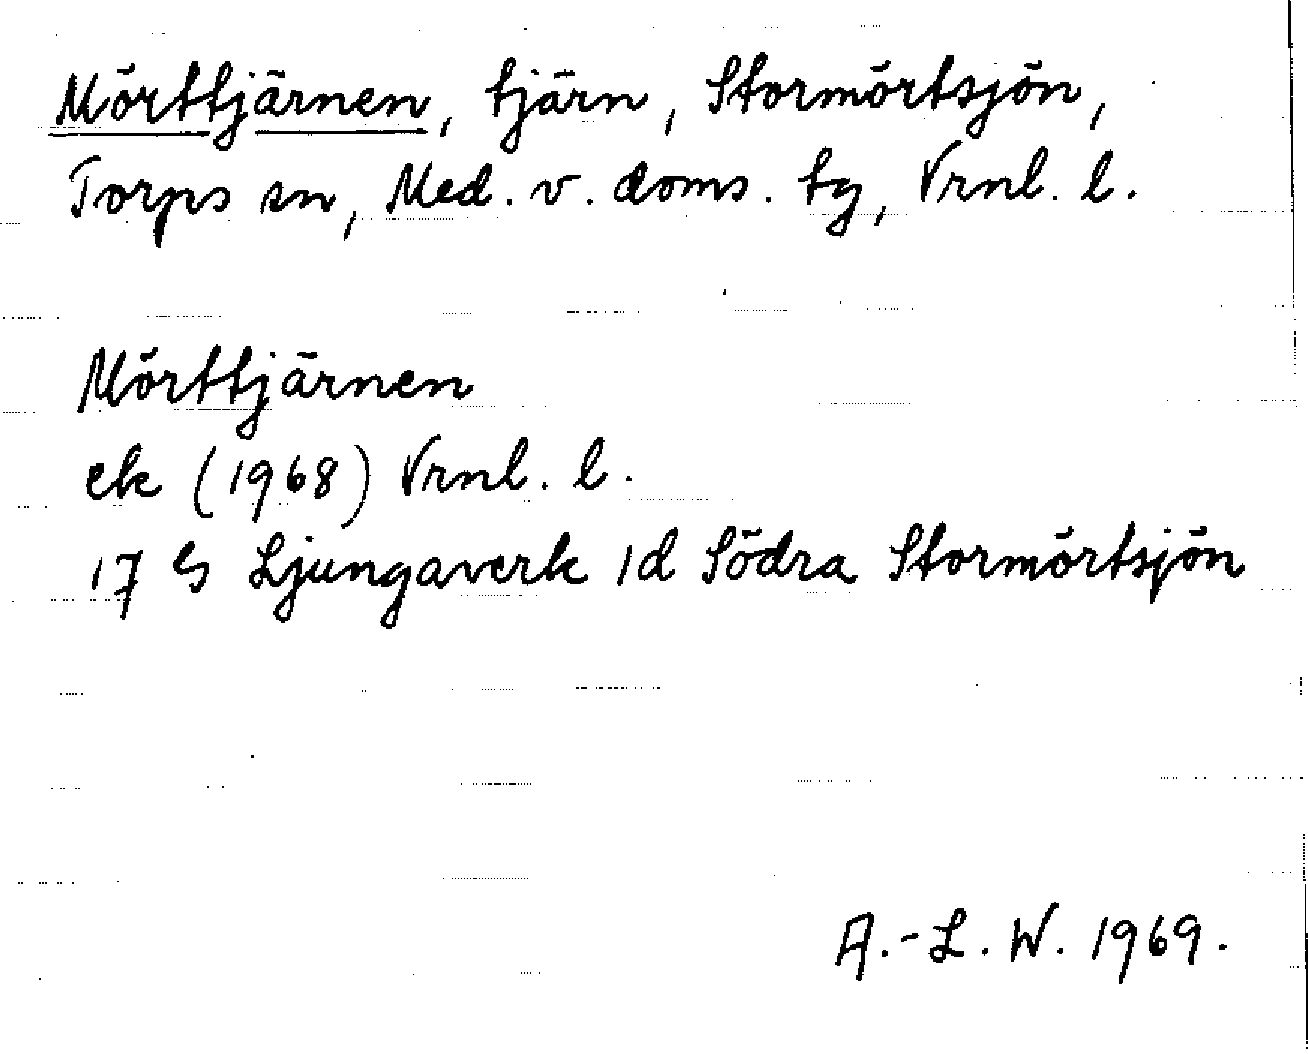 Mörttjärnen, tjärn, Stormörtsjön,
Torps sn, Med. v. doms. tg, Vrnl. l.
Mörttjärnen
ek (1968) Vrnl. l.
17 G Ljungaverk 1d Södra Stormörtsjön
A.-L. W. 1969.